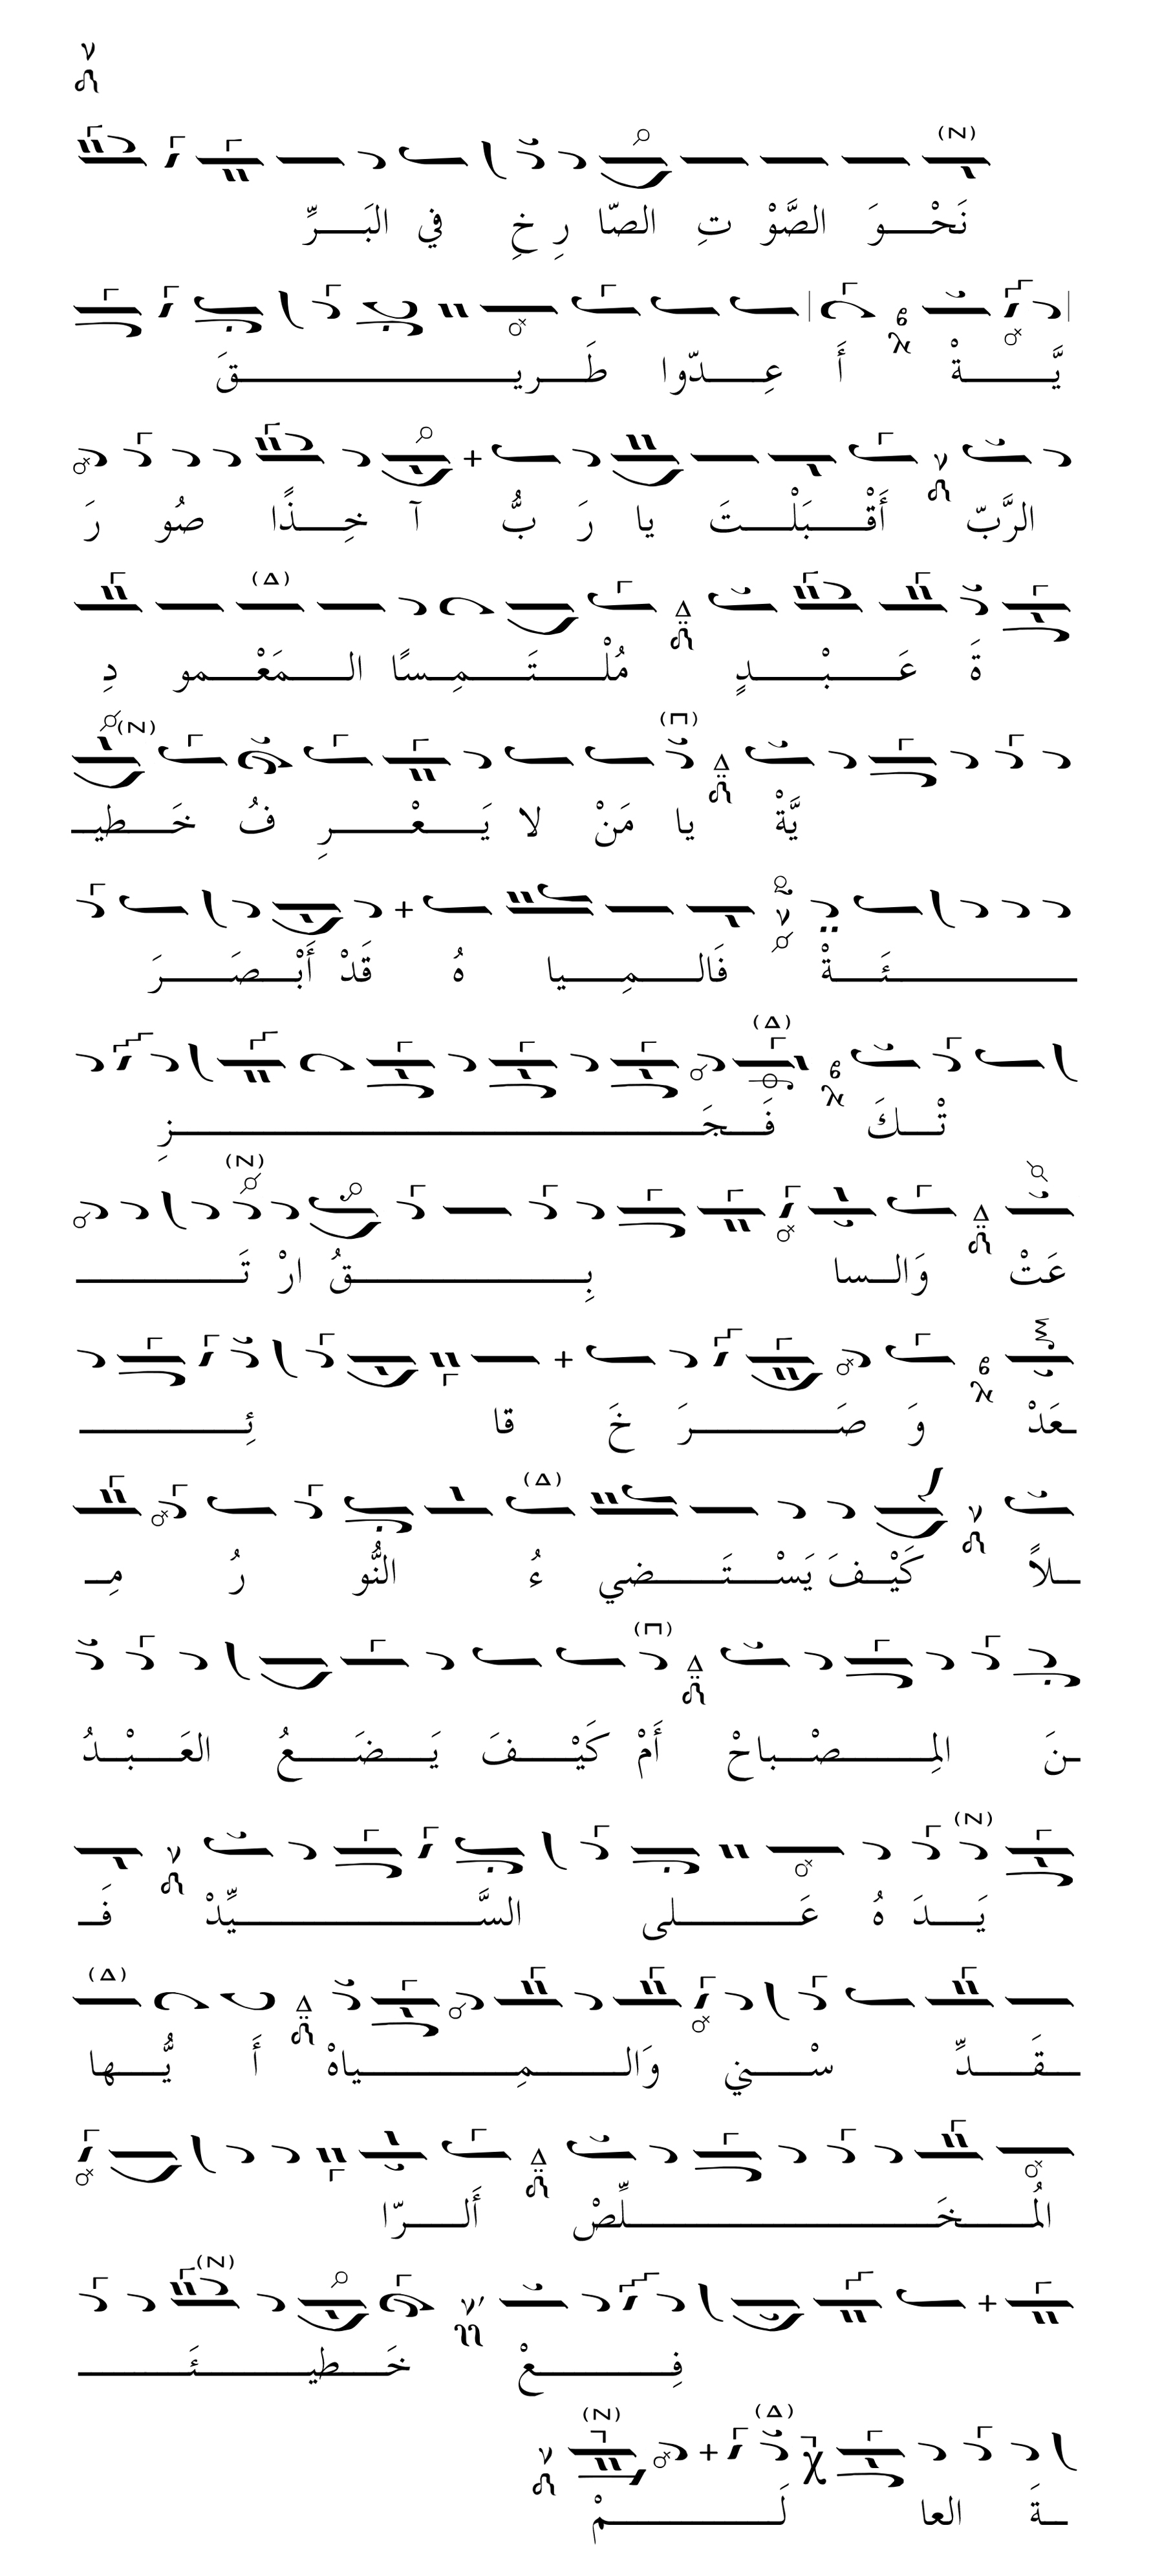 نَحْـــوَ الصَّوْ تِ الصّا رِ خِ في البَـــرِّ
يَّـــــةْ أَ عِـــدّوا طَـــريـــــــــــــــــقَ
الرَّبّ أَقْـــبَلْـــتَ يا رَ بُّ آ خِـــذًا صُو رَ
ةَ عَـــــبْـــــدٍ مُلْـــــتَـــــمِـــسًا الـــــمَعْـــمو دِ
يَّةْ يا مَنْ لا يَـــــعْـــــرِ فُ خَـــطيـ
ـــــــــــئَـــةْ فَالـــــمِـــــيا هُ قَدْ أَبْـــصَـــــرَ
تْـــكَ فَـــجَـــــــــــــــــــــــــــــزِ
عَتْ وَالـــسا بِـــــــــــــــــقُ ارْ تَـــــــــــ
ـعَدْ وَ صَـــــــــرَ خَ قا ئِـــــــــــ
ـــلاً كَيْـــفَ يَسْـــتَـــــضي ءُ النُّو رُ مِـ
ـنَ المِـــــــصْـــباحْ أَمْ كَيْـــــفَ يَـــــضَـــــعُ العَـــبْـــدُ
يَـــدَ هُ عَـــــــــلى السَّـــــــــــــــيِّدْ فَـ
ـــقَـــــدِّ سْـــــني وَالـــــــــمِـــــــــياهْ أَ يُّـــها
المُـــــخَـــــــــــــــــــــلِّصْ أَلـــــرّا
فِـــــــــعْ خَـــطيـــــــئَـــــــ
ـــةَ العا لَـــــــــــمْ